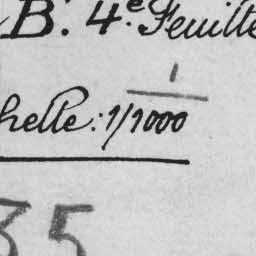 B. 4.e Feuille
helle: 1/1000
1
35